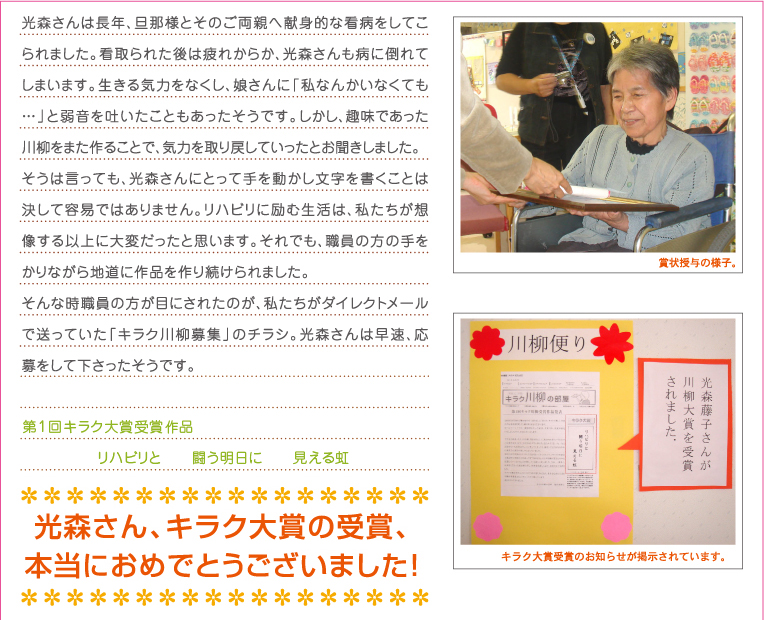 光森さんは長年、旦那様とそのご両親へ献身的な看病をしてこ
られました。看取られた後は疲れからか、光森さんも病に倒れて
しまいます。生きる気力をなくし、娘さんに「私なんかいなくても
…」と弱音を吐いたこともあったそうです。しかし、趣味であった
川柳をまた作ることで、気力を取り戻していったとお聞きしました。
そうは言っても、光森さんにとって手を動かし文字を書くことは
決して容易ではありません。リハビリに励む生活は、私たちが想
像する以上に大変だったと思います。それでも、職員の方の手を
かりながら地道に作品を作り続けられました。
そんな時職員の方が目にされたのが、私たちがダイレクトメール
で送っていた「キラク川柳募集」のチラシ。光森さんは早速、応
募をして下さったそうです。
第1回キラク大賞受賞作品
リハビリと 闘う明日に 見える虹
光森さん、キラク大賞の受賞、
本当におめでとうございました!
賞状授与の様子。
川柳便り
キラク川柳の部屋
光森藤子さんが
川柳大賞を受賞
されました。
キラク大賞受賞のお知らせが掲示されています。